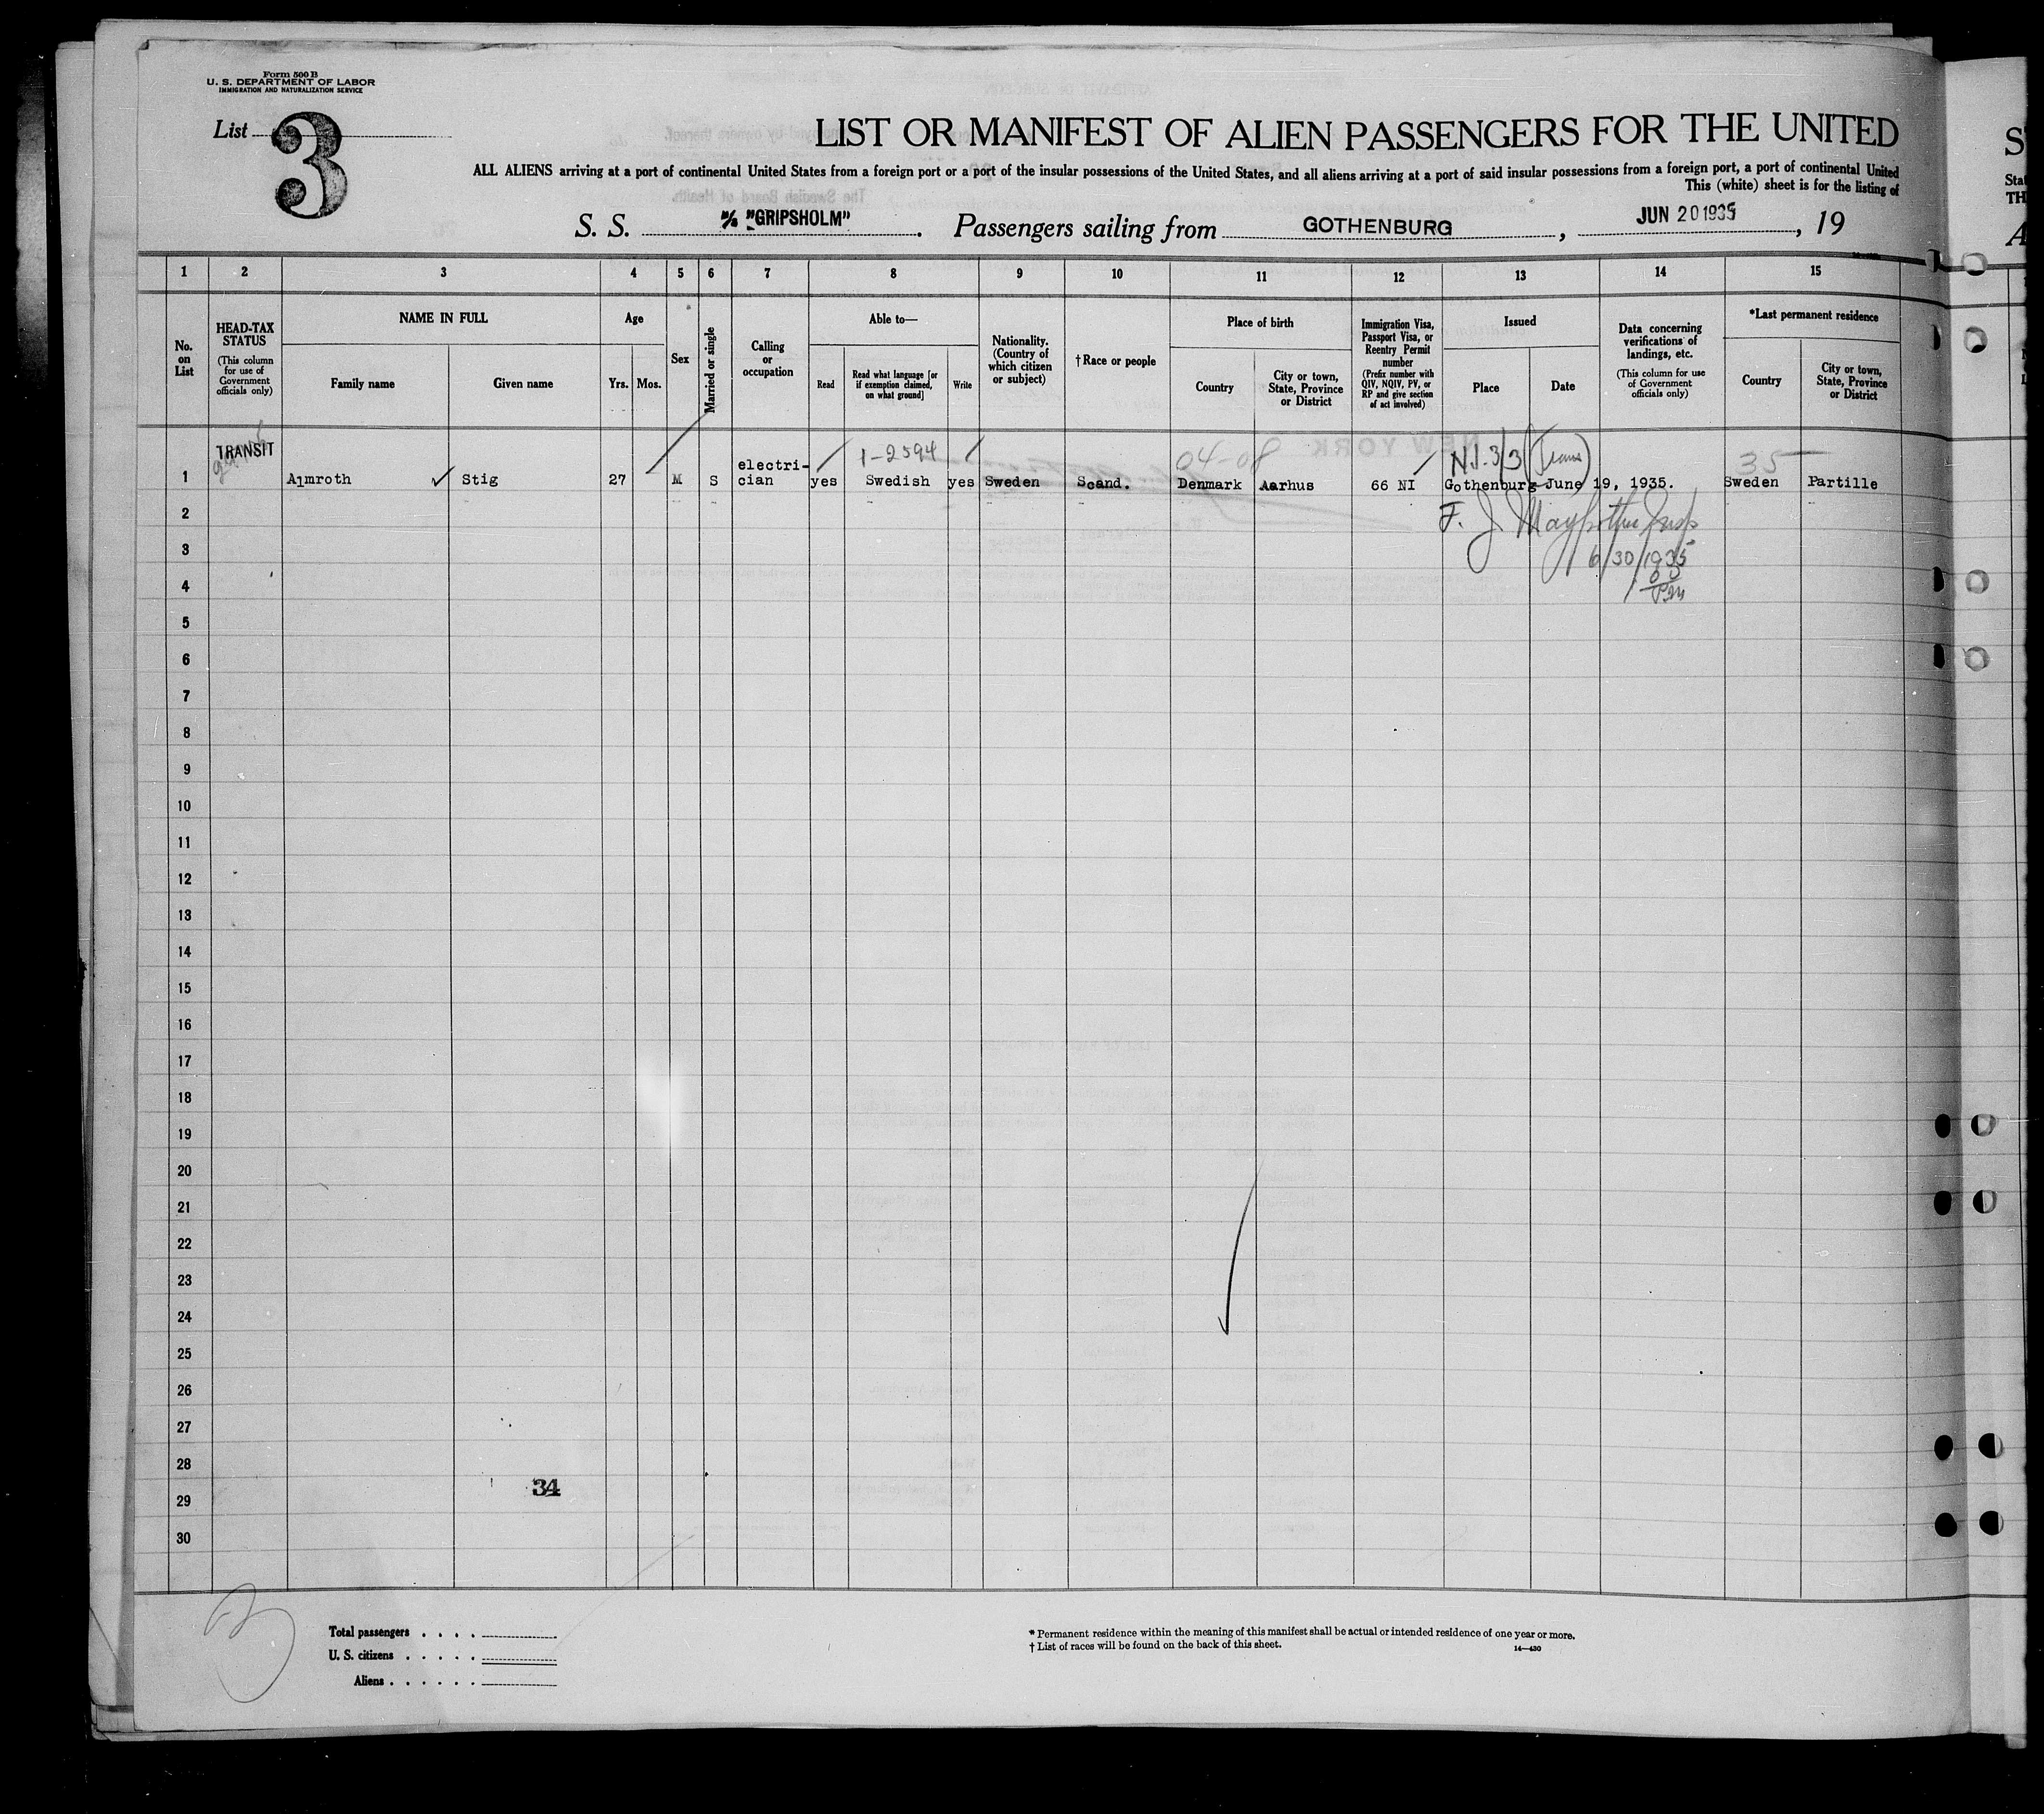 Form 500 B
U. S. DEPARTMENT OF LABOR
IMMIGRATION AND NATURALIZATION SERVICE
List 3
LIST OR MANIFEST OF ALIEN PASSENGERS FOR THE UNITED
ALL ALIENS arriving at a port of continental United States from a foreign port or a port of the insular possessions of the United States, and all aliens arriving at a port of said insular possessions from a foreign port, a port of continental United
This (white) sheet is for the listing of
S. S. M/S "GRIPSHOLM". Passengers sailing from GOTHENBURG, JUN 20 1935, 19
1 2 3 4 5 6 7 8 9 10 11 12 13 14 15
No. on List
HEAD-TAX STATUS
(This column for use of Government officials only)
NAME IN FULL
Family name
Given name
Age
Yrs.
Mos.
Sex
Married or single
Calling or occupation
Able to—
Read
Read what language [or if exemption claimed, on what ground]
Write
Nationality. (Country of which citizen or subject)
†Race or people
Place of birth
Country
City or town, State, Province or District
Immigration Visa, Passport Visa, or Reentry Permit number
(Prefix number with QIV, NQIV, PV, or RP and give section of act involved)
Issued
Place
Date
Data concerning verifications of landings, etc.
(This column for use of Government officials only)
*Last permanent residence
Country
City or town, State, Province or District
TRANSIT
1-2594
04-08
N.I. 3/3 (Trans)
35
1 Almroth Stig 27 M S electri-cian yes Swedish yes Sweden Scand. Denmark Aarhus 66 NI Gothenburg June 19, 1935. Sweden Partille
2
F. J.
3
6/30/1935
4
PM
5
6
7
8
9
10
11
12
13
14
15
16
17
18
19
20
21
22
23
24
25
26
27
28
34
29
30
Total passengers
U. S. citizens
Aliens
* Permanent residence within the meaning of this manifest shall be actual or intended residence of one year or more.
† List of races will be found on the back of this sheet.
14—430
S
Stat
TH
A